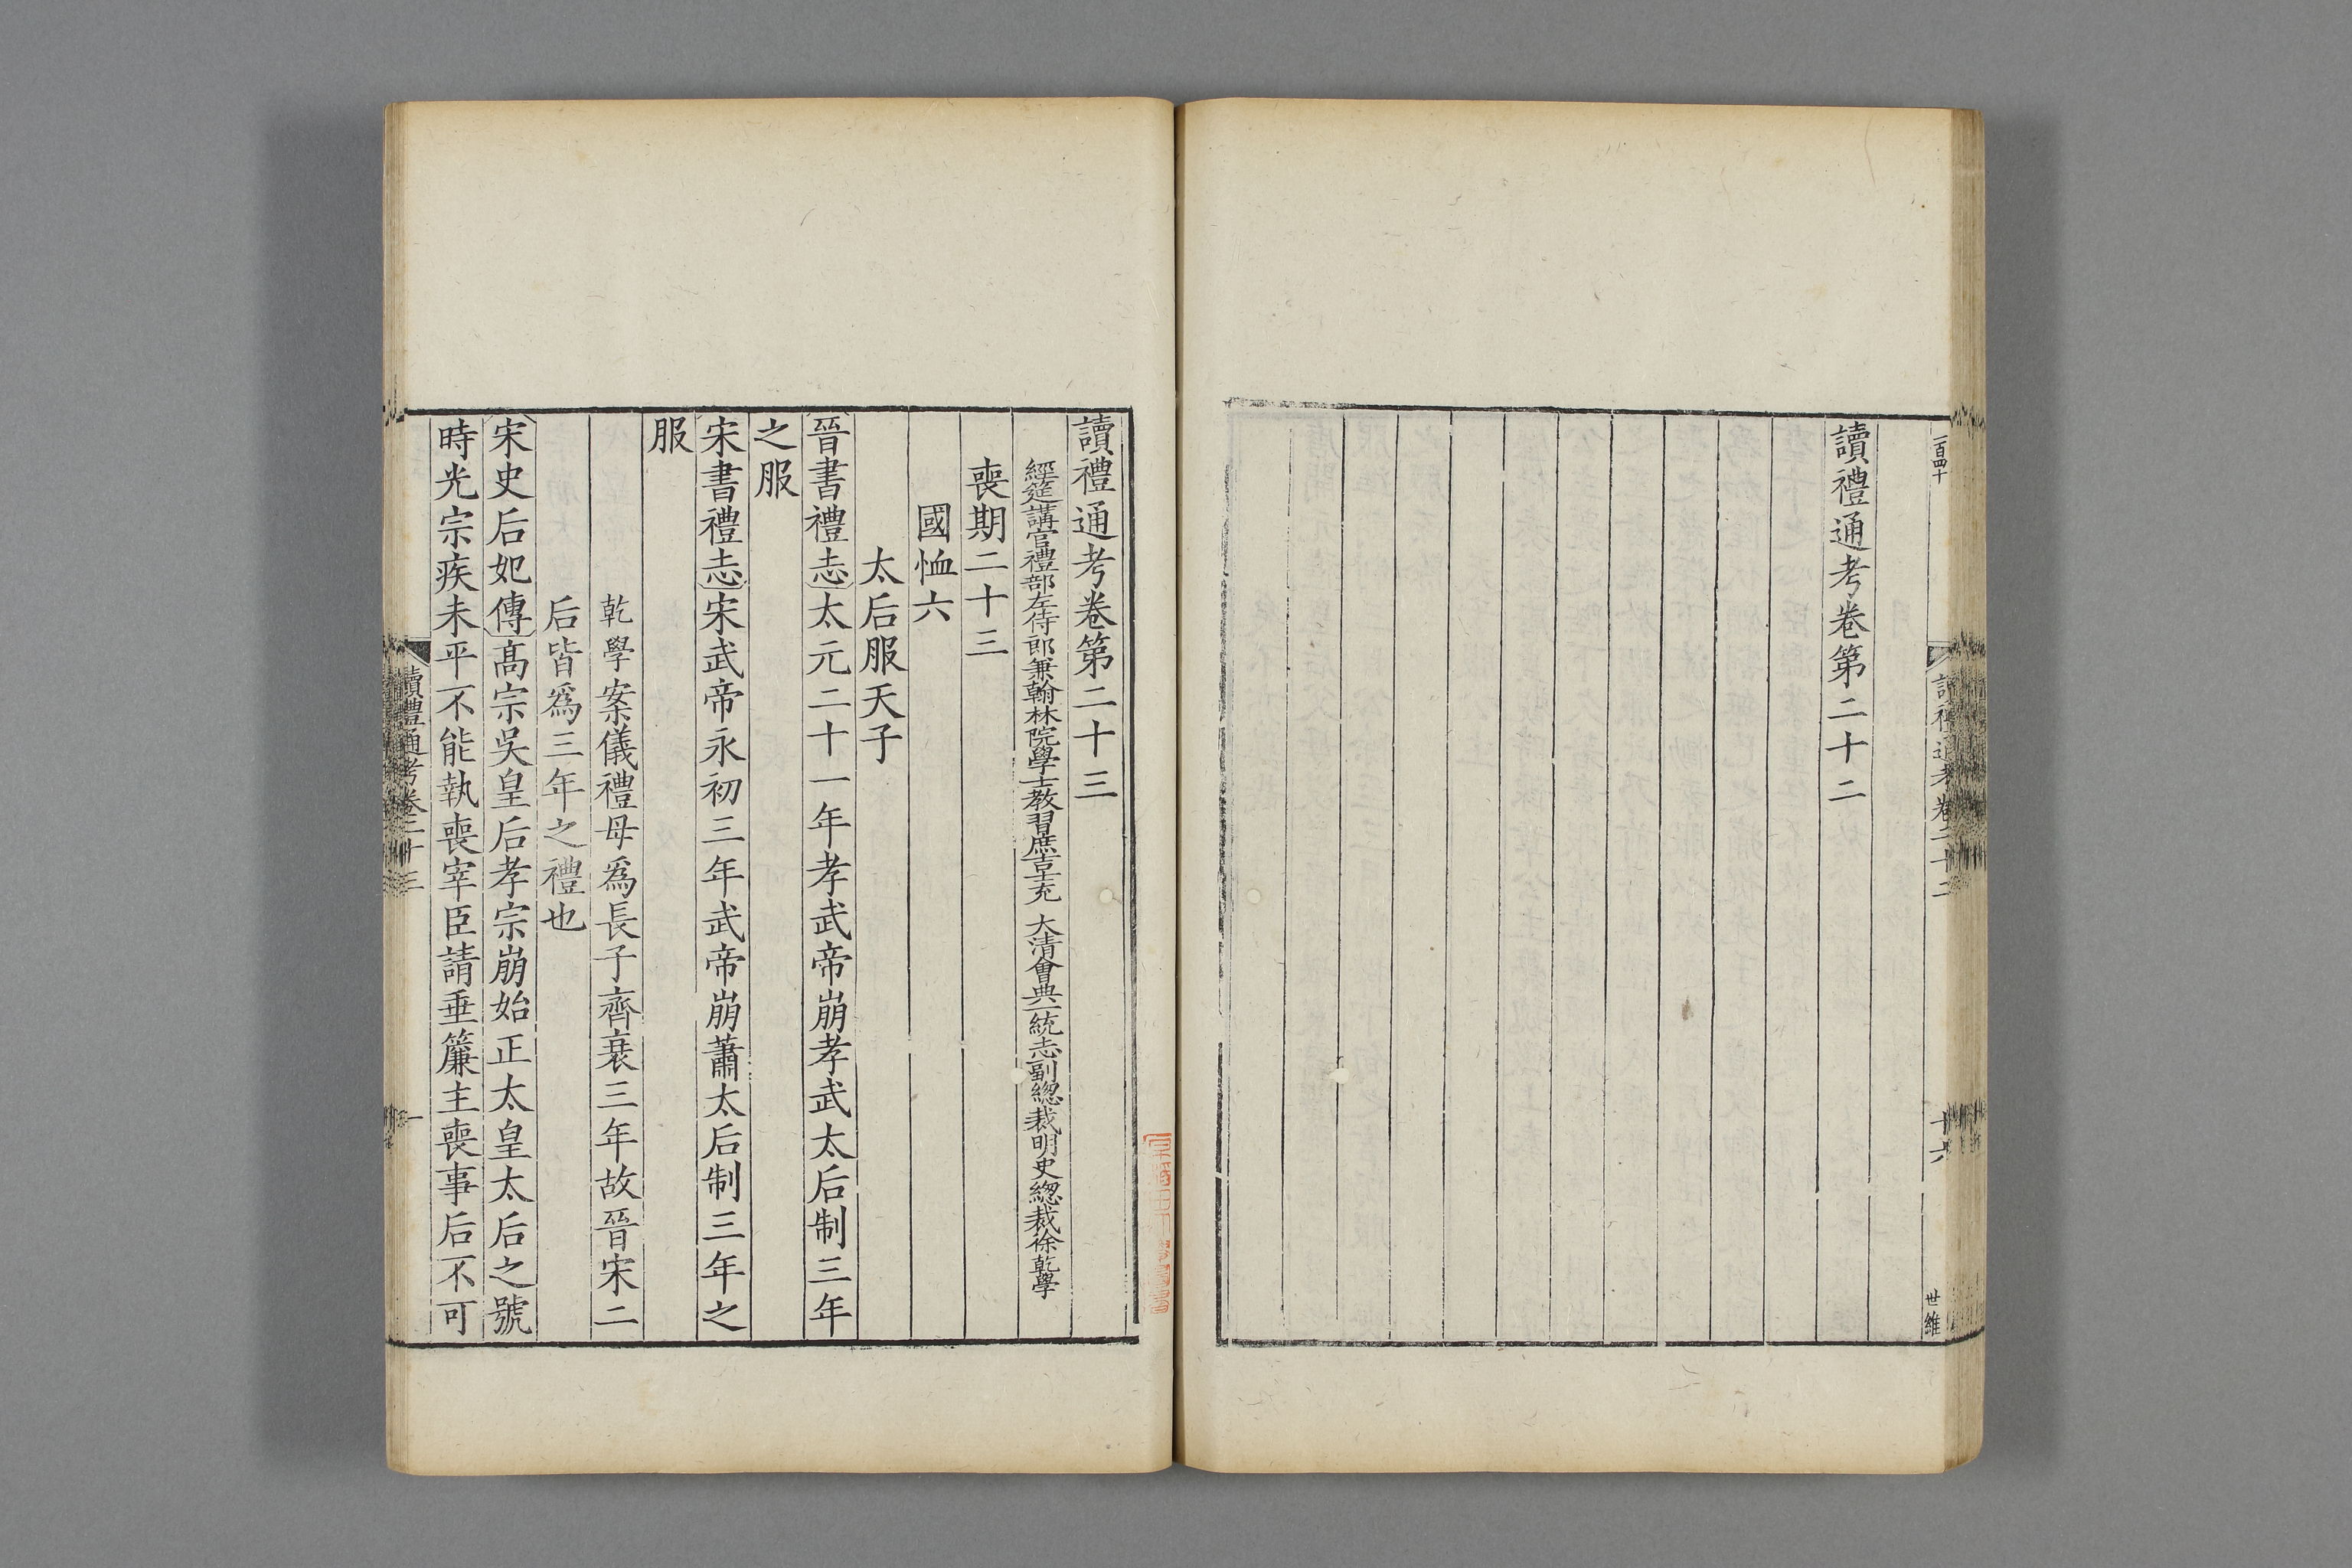 一百四十
讀禮通考卷二十二
十六
世維
讀禮通考卷第二十二
讀禮通考卷第二十三
經筵講官禮部左侍郎兼翰林院學士教習庶吉士充 大清會典一統志副總裁明史總裁徐乾學
喪期二十三
國恤六
太后服天子
晉書禮志太元二十一年孝武帝崩孝武太后制三年
之服
宋書禮志宋武帝永初三年武帝崩蕭太后制三年之
服
乾學案儀禮母爲長子齊衰三年故晉宋二
后皆爲三年之禮也
宋史后妃傳高宗吳皇后孝宗崩始正太皇太后之號
時光宗疾未平不能執喪宰臣請垂簾主喪事后不可
讀禮通考卷二十三
一